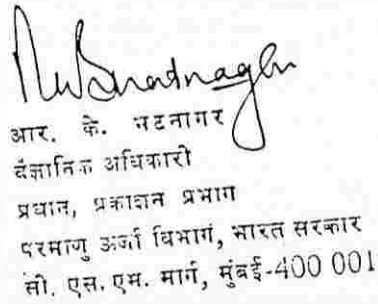 RK Bhatnagar
आर. के. भटनागर
वैज्ञानिक अधिकारी
प्रधान, प्रकाशन प्रभाग
परमाणु ऊर्जा विभाग, भारत सरकार
सी. एस. एम. मार्ग, मुंबई-400 001